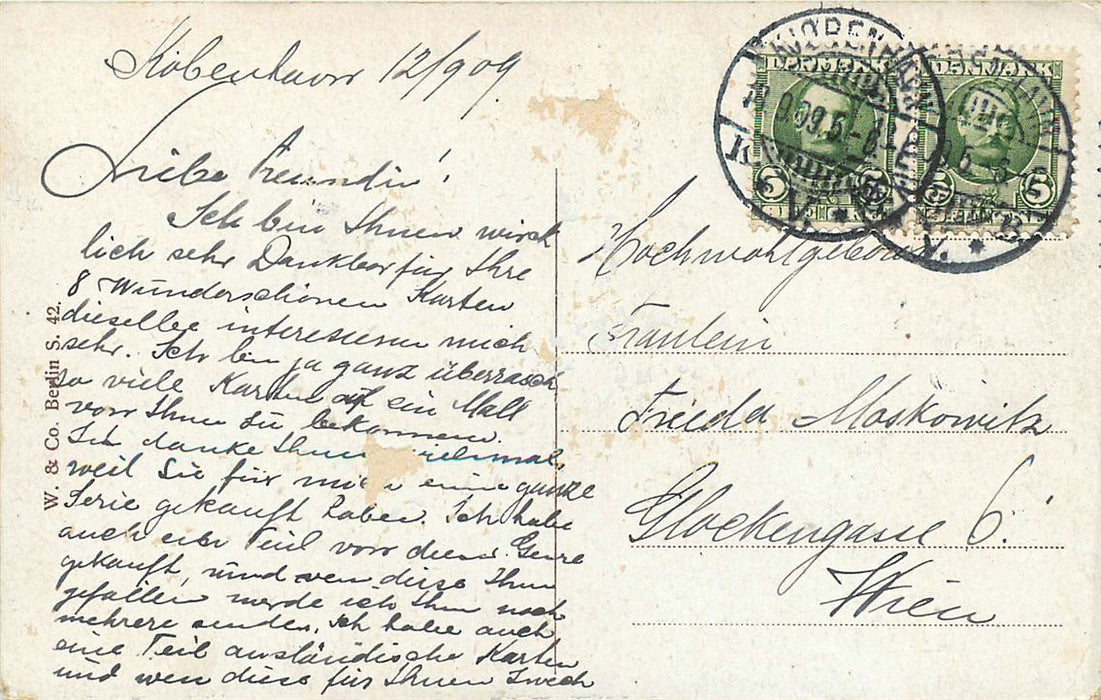 Kobenhavn 12/9 09
Liebe Freundin!
Ich bin Ihnen wirck
lich sehr Dankbar für Ihre
8 Wunderschönen Karten
dieselbe interessieren mich
sehr. Ich bin ja ganz überrasch
so viele Karten auf ein Mall
von Ihnen zu bekommen.
Ich danke Ihnen vielmal,
weil Sie für mich eine ganze
Serie gekauft haben. Ich habe
auch ein Teil von diese Genre
gekauft, und wen diese Ihnen
gefallen werde ich Ihn noch
mehrere senden. Ich habe auch
eine Teil ausländische Karten
und wen diese für Ihnen Zwech
W. & Co. Berlin S. 42.
KJØBENHAVN
9.09.5-6 E
K. V.
DANMARK
5 5
DANMARK
5 5
Hochwohlgeboren
Fräulein
Frieda Moskowitz
Glockengasse 6
Wien